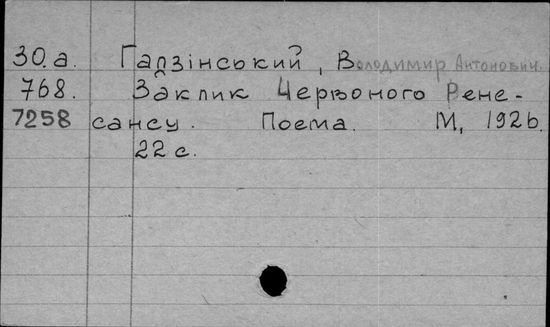 30.а. Гадзінський, Володимир Антонович.
768. Заклик Червоного Рене-
7258 сансу. Поема. М, 1926.
22 с.